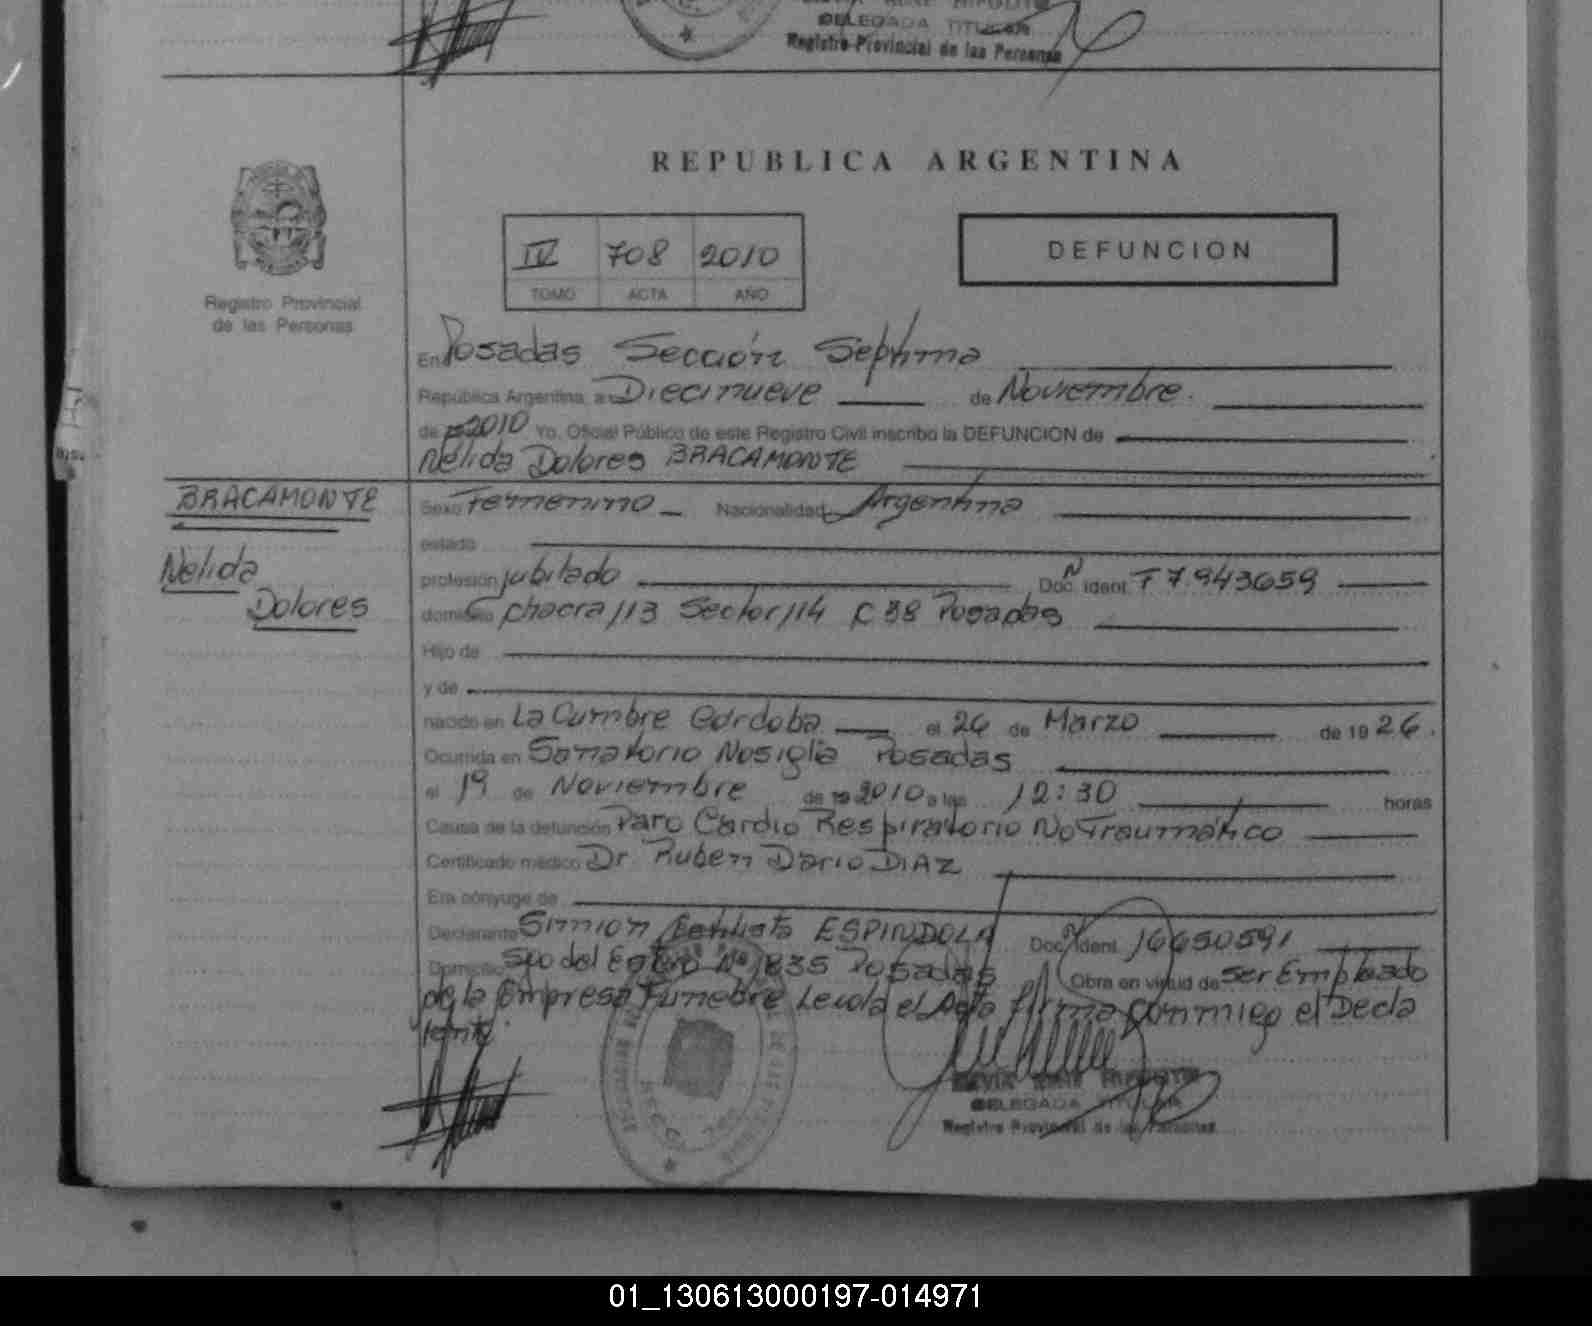 DELEGADA TITULAR
Registro Provincial de las Personas
REPUBLICA ARGENTINA
IV 708 2010
TOMO ACTA AÑO
DEFUNCION
Registro Provincial
de las Personas
En Posadas Sección Septima
República Argentina, a Diecinueve de Noviembre.
de 2010 Yo, Oficial Público de este Registro Civil inscribo la DEFUNCION de
Nelida Dolores BRACAMONTE
BRACAMONTE
Nelida
Dolores
Sexo Femenino Nacionalidad Argentina
estado
profesión jubilado Doc. Ident. N T 7.943659
domicilio chacra 113 Sector 114 C 38 Posadas
Hijo de
y de
nacido en La Cumbre Cordoba el 26 de Marzo de 19 26.
Ocurrida en Sanatorio Nosiglia Posadas
el 19 de Noviembre de 2010 a las 12:30 horas
Causa de la defunción Paro Cardio Respiratorio No Traumático
Certificado médico Dr. Ruben Dario DIAZ
Era cónyuge de
Declarante Simion ESPINDOLA Doc. Ident. N 16650591
Domicilio Sgo del Estero Nº 835 Posadas Obra en virtud de ser Empleado
de la Empresa Funebre Leida el Acta firma conmigo el Decla
rante.
DELEGADA TITULAR
Registro Provincial de las Personas
01_130613000197-014971